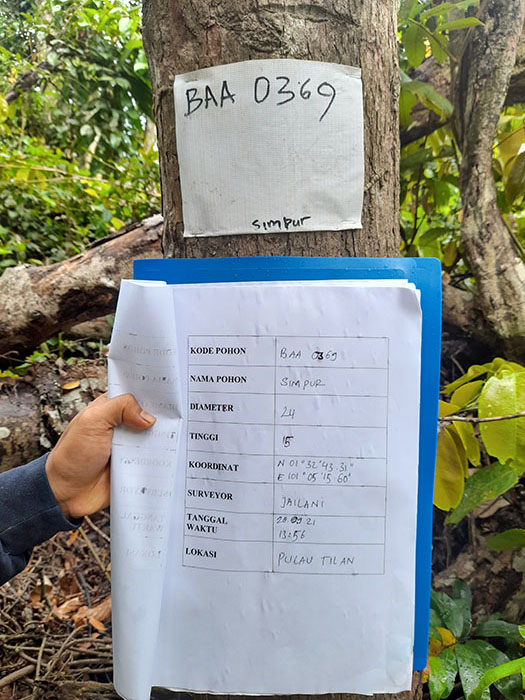 BAA 0369
simpur
KODE POHON BAA 0369
NAMA POHON SIMPUR
DIAMETER 24
TINGGI 15
KOORDINAT N 01°32'43.31"
E 101°05'15.60"
SURVEYOR JAILANI
TANGGAL 28.09.21
WAKTU 13:56
LOKASI PULAU TILAN